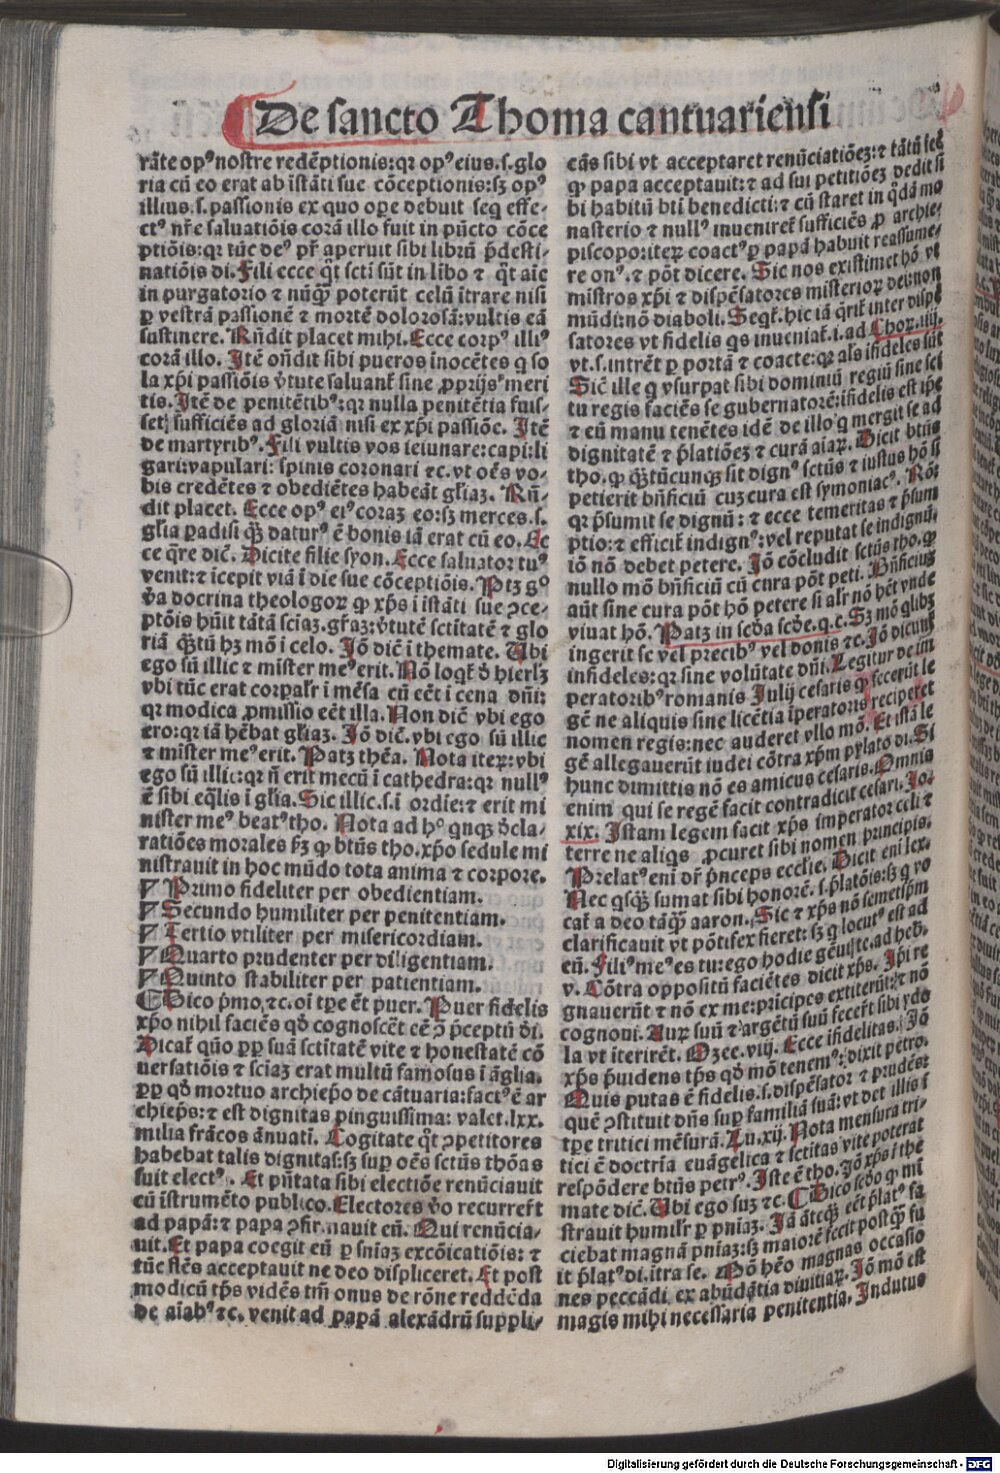 De sancto Thoma cantuariensi
rãte opꝰ nostre redẽptionis: qꝛ opꝰ eius.s.glo
ria cũ eo erat ab ĩstãti sue cõceptionis: sꝫ opꝰ
illius.s.passionis ex quo oꝑe debuit seq̃ effe-
ctꝰ nr̃e saluatiõis corã illo fuit in pũcto cõce
ptiõis: qꝛ tũc deꝰ pr̃ aperuit sibi librũ p̃desti-
natiõis di. Fili ecce qͦt scti sũt in lib̃o ⁊ qͦt aĩe
in purgatorio ⁊ nũq̃ poterũt celũ ĩtrare nisi
ꝑ vestrã passionẽ ⁊ mortẽ dolorosã: vultis eã
sustinere. Rñdit placet mihi. Ecce corpꝰ illiꝰ
corã illo. Itẽ oñdit sibi pueros inocẽtes q̃ so
la xp̃i passiõis ṽtute saluant̃ sine ꝓprijs meri
tis. Itẽ de penitẽtibꝰ: qꝛ nulla penitẽtia fuis-
set sufficiẽs ad gloriã nisi ex xp̃i passiõe. Itẽ
de martyribꝰ. Fili vultis vos ieiunare: capi: li
gari: vapulari: spinis coronari ⁊c. vt oẽs vo-
bis credẽtes ⁊ obediẽtes habeãt gl̃iaꝫ. Rñ-
dit placet. Ecce opꝰ eiꝰ coraꝫ eo: sꝫ merces.s.
gl̃ia padisi q̃ daturꝰ ẽ bonis iã erat cũ eo. Ec
ce q̃re dic̃. Dicite filie syon. Ecce saluator tuꝰ
venit: ⁊ icepit viã ĩ die sue cõceptiõis. Ptꝫ gͦ
ṽa docrina theologoꝝ ꝙ xp̃s ĩ istãti sue ɔce-
ptõis hũit tãtã sciaꝫ. gr̃aꝫ: ṽtutẽ sctĩtatẽ ⁊ glo
riã q̃tũ hꝫ mõ ĩ celo. Iõ dic̃ ĩ themate. Ubi
ego sũ illic ⁊ mister meꝰ erit. Nõ loqt̃ ð hierl̃ꝫ
vbi tũc erat corpal̃r ĩ mẽsa cũ eẽt ĩ cena dñi:
qꝛ modica ꝓmissio eẽt illa. Non dic̃ vbi ego
ero: qꝛ iã hẽbat gl̃iaꝫ. Iõ dic̃. vbi ego sũ illic
⁊ mister meꝰ erit. Patꝫ thẽa. Nota iteꝝ: vbi
ego sũ illic: qꝛ ñ erit mecũ ĩ cathedra: qꝛ nullꝰ
ẽ sibi eq̃lis ĩ gl̃ia. Sic illic.s.ĩ ordie: ⁊ erit mi
nister meꝰ beatꝰ tho. Nota ad hͦ qnqꝫ ðcla-
ratiões morales p̃ꝫ ꝙ btũs tho. xp̃o sedule mi
nistrauit in hoc mũdo tota anima ⁊ corpore.
Primo fideliter per obedientiam.
Secundo humiliter per penitentiam.
Tertio vtiliter per misericordiam.
Quarto prudenter per diligentiam.
Quinto stabiliter per patientiam.
Dico p̃mo, ⁊c. oĩ tꝑe ẽt puer. Puer fidelis
xp̃o nihil faciẽs qð cognoscẽt eẽ ɔ p̃ceptũ ði.
Dicat̃ qũo ꝓꝑ suã sctĩtatẽ vite ⁊ honestatẽ cõ
uersatiõis ⁊ sciaꝫ erat multũ famosus ĩ ãglia.
ꝓꝑ qð mortuo archiep̃o de cãtuaria: factꝰ ẽ ar
chiep̃s: ⁊ est dignitas pinguissima: valet.lxx.
milia frãcos ãnuatĩ. Cogitate qͦt ɔpetitores
habebat talis dignitas: sꝫ suꝑ oẽs sctũs thõas
fuit electꝰ. Et p̃ñtata sibi electiõe renũciauit
cũ ĩstrumẽto publico. Electores ṽo recurrer̃t
ad papã: ⁊ papa ɔfirmauit eũ. Qui renũcia-
uit. Et papa coegit eũ ꝑ sñiaꝫ excõicatiõis: ⁊
tũc flẽs acceptauit ne deo displiceret. Et post
modicũ tp̃s vidẽs tm̃ onus de rõne reddẽda
de aĩabꝰ ⁊c. venit ad papã alexãdrũ suppli-
cãs sibi vt acceptaret renũciatiõeꝫ: ⁊ tãtũ fec̃
ꝙ papa acceptauit: ⁊ ad sui petitiõeꝫ dedit si
bi habitũ bti benedicti: ⁊ cũ staret in q̃dã mo
nasterio ⁊ nullꝰ inueniret̃ sufficiẽs ꝓ archie-
piscopo iteꝝ coactꝰ ꝑ papã habuit reassume-
re onꝰ. ⁊ põt dicere. Sic nos existimet hõ vt
mistros xp̃i ⁊ dispẽsatores misterioꝝ dei: non
mũdi: nõ diaboli. Seqt̃. hic iã q̃rit̃ inter dispẽ
satores vt fidelis qs inueniat̃.i.ad Choꝝ.iiij.
vt.s.intrẽt ꝑ portã ⁊ coacte: qꝛ als ĩfideles sũt
Sic̃ ille q̃ vsurpat sibi dominiũ regiũ sine sci
tu regis faciẽs se gubernatorẽ: ĩfidelis est ip̃e
⁊ eũ manu tenẽtes idẽ de illo q̃ mergit se ad
dignitatẽ ⁊ p̃latiõeꝫ ⁊ curã aiaꝝ. Dicit btũs
tho. ꝙ q̃tũcunqꝫ sit dignꝰ sctũs ⁊ iustus hõ si
petierit bñficiũ cuꝫ cura est symoniacꝰ. Rõ:
qꝛ p̃sumit se dignũ: ⁊ ecce temeritas ⁊ p̃sum
ptio: ⁊ efficit̃ indignꝰ: vel reputat se indignũ,
iõ nõ debet petere. Iõ cõcludit sctũs tho. ꝙ
nullo mõ bñficiũ cũ cura põt peti. Bñficiũ
aũt sine cura põt hõ petere si al̃r nõ hẽt vnde
viuat hõ. Patꝫ in scða scðe.q.c. Sꝫ mõ qlibꝫ
ingerit se vel precibꝰ vel donis ⁊c. Iõ dicunt̃
infideles: qꝛ sine volũtate dñi. Legitur de im
peratoribꝰ romanis Julij cesaris ꝙ fecerũt le
gẽ ne aliquis sine licẽtia ĩperatoris reciperet
nomen regis: nec auderet vllo mõ. Et istã le
gẽ allegauerũt iudei cõtra xp̃m pylato di. Si
hunc dimittis nõ es amicus cesaris. Omnis
enim qui se regẽ facit contradicit cesari. Io.
xix. Istam legem facit xp̃s imperator celi ⁊
terre ne aliqs ꝓcuret sibi nomen principis.
Prelatꝰ enĩ dr̃ p̃nceps ecclie. Dicit enĩ lex.
Nec q̃sqꝫ sumat sibi honorẽ.s.p̃latõis: sꝫ q̃ vo
cat̃ a deo tãq̃ aaron. Sic ⁊ xp̃s nõ semetip̃m
clarificauit vt põtifex fieret: sꝫ q̃ locutꝰ est ad
eũ. Filiꝰ meꝰ es tu: ego hodie gẽui te. ad heb.
v. Cõtra oppositũ faciẽtes dicit xp̃s. Ip̃i re
gnauerũt ⁊ nõ ex me: pricipes extiterũt: ⁊ nõ
cognoui. Auꝝ suũ ⁊ argẽtũ suũ fecer̃t sibi ydo
la vt ĩterirẽt. Ozee.viij. Ecce ĩfidelitas. Iõ
xp̃s p̃uidens tp̃s qð mõ tenemꝰ: dixit petro.
Quis putas ẽ fidelis.s.dispẽsator ⁊ prudẽs:
quẽ ɔstituit dñs suꝑ familiã suã: vt det illis ĩ
tꝑe tritici mẽsurã. Lu.xij. Nota mensura tri-
tici ẽ doctrĩa euãgelica ⁊ sctitas vite poterat
respõdere btũs petrꝰ. Iste ẽ tho. Iõ xp̃s ĩ the
mate dic̃. Ubi ego suꝫ ⁊c. Dico scðo q̃ mĩ
strauit humilr̃ ꝑ pniaꝫ. Iã ãteq̃ eẽt p̃latꝰ fa
ciebat magnã pniaꝫ: sꝫ maiorẽ fecit postq̃ fu
it p̃latꝰ di. ĩtra se. Mõ hẽo magnas occasio
nes peccãdi ex abũdãtia diuitiaꝝ. Iõ mõ est
magis mihi necessaria penitentia. Indutus
Digitalisierung gefördert durch die Deutsche Forschungsgemeinschaft - DFG